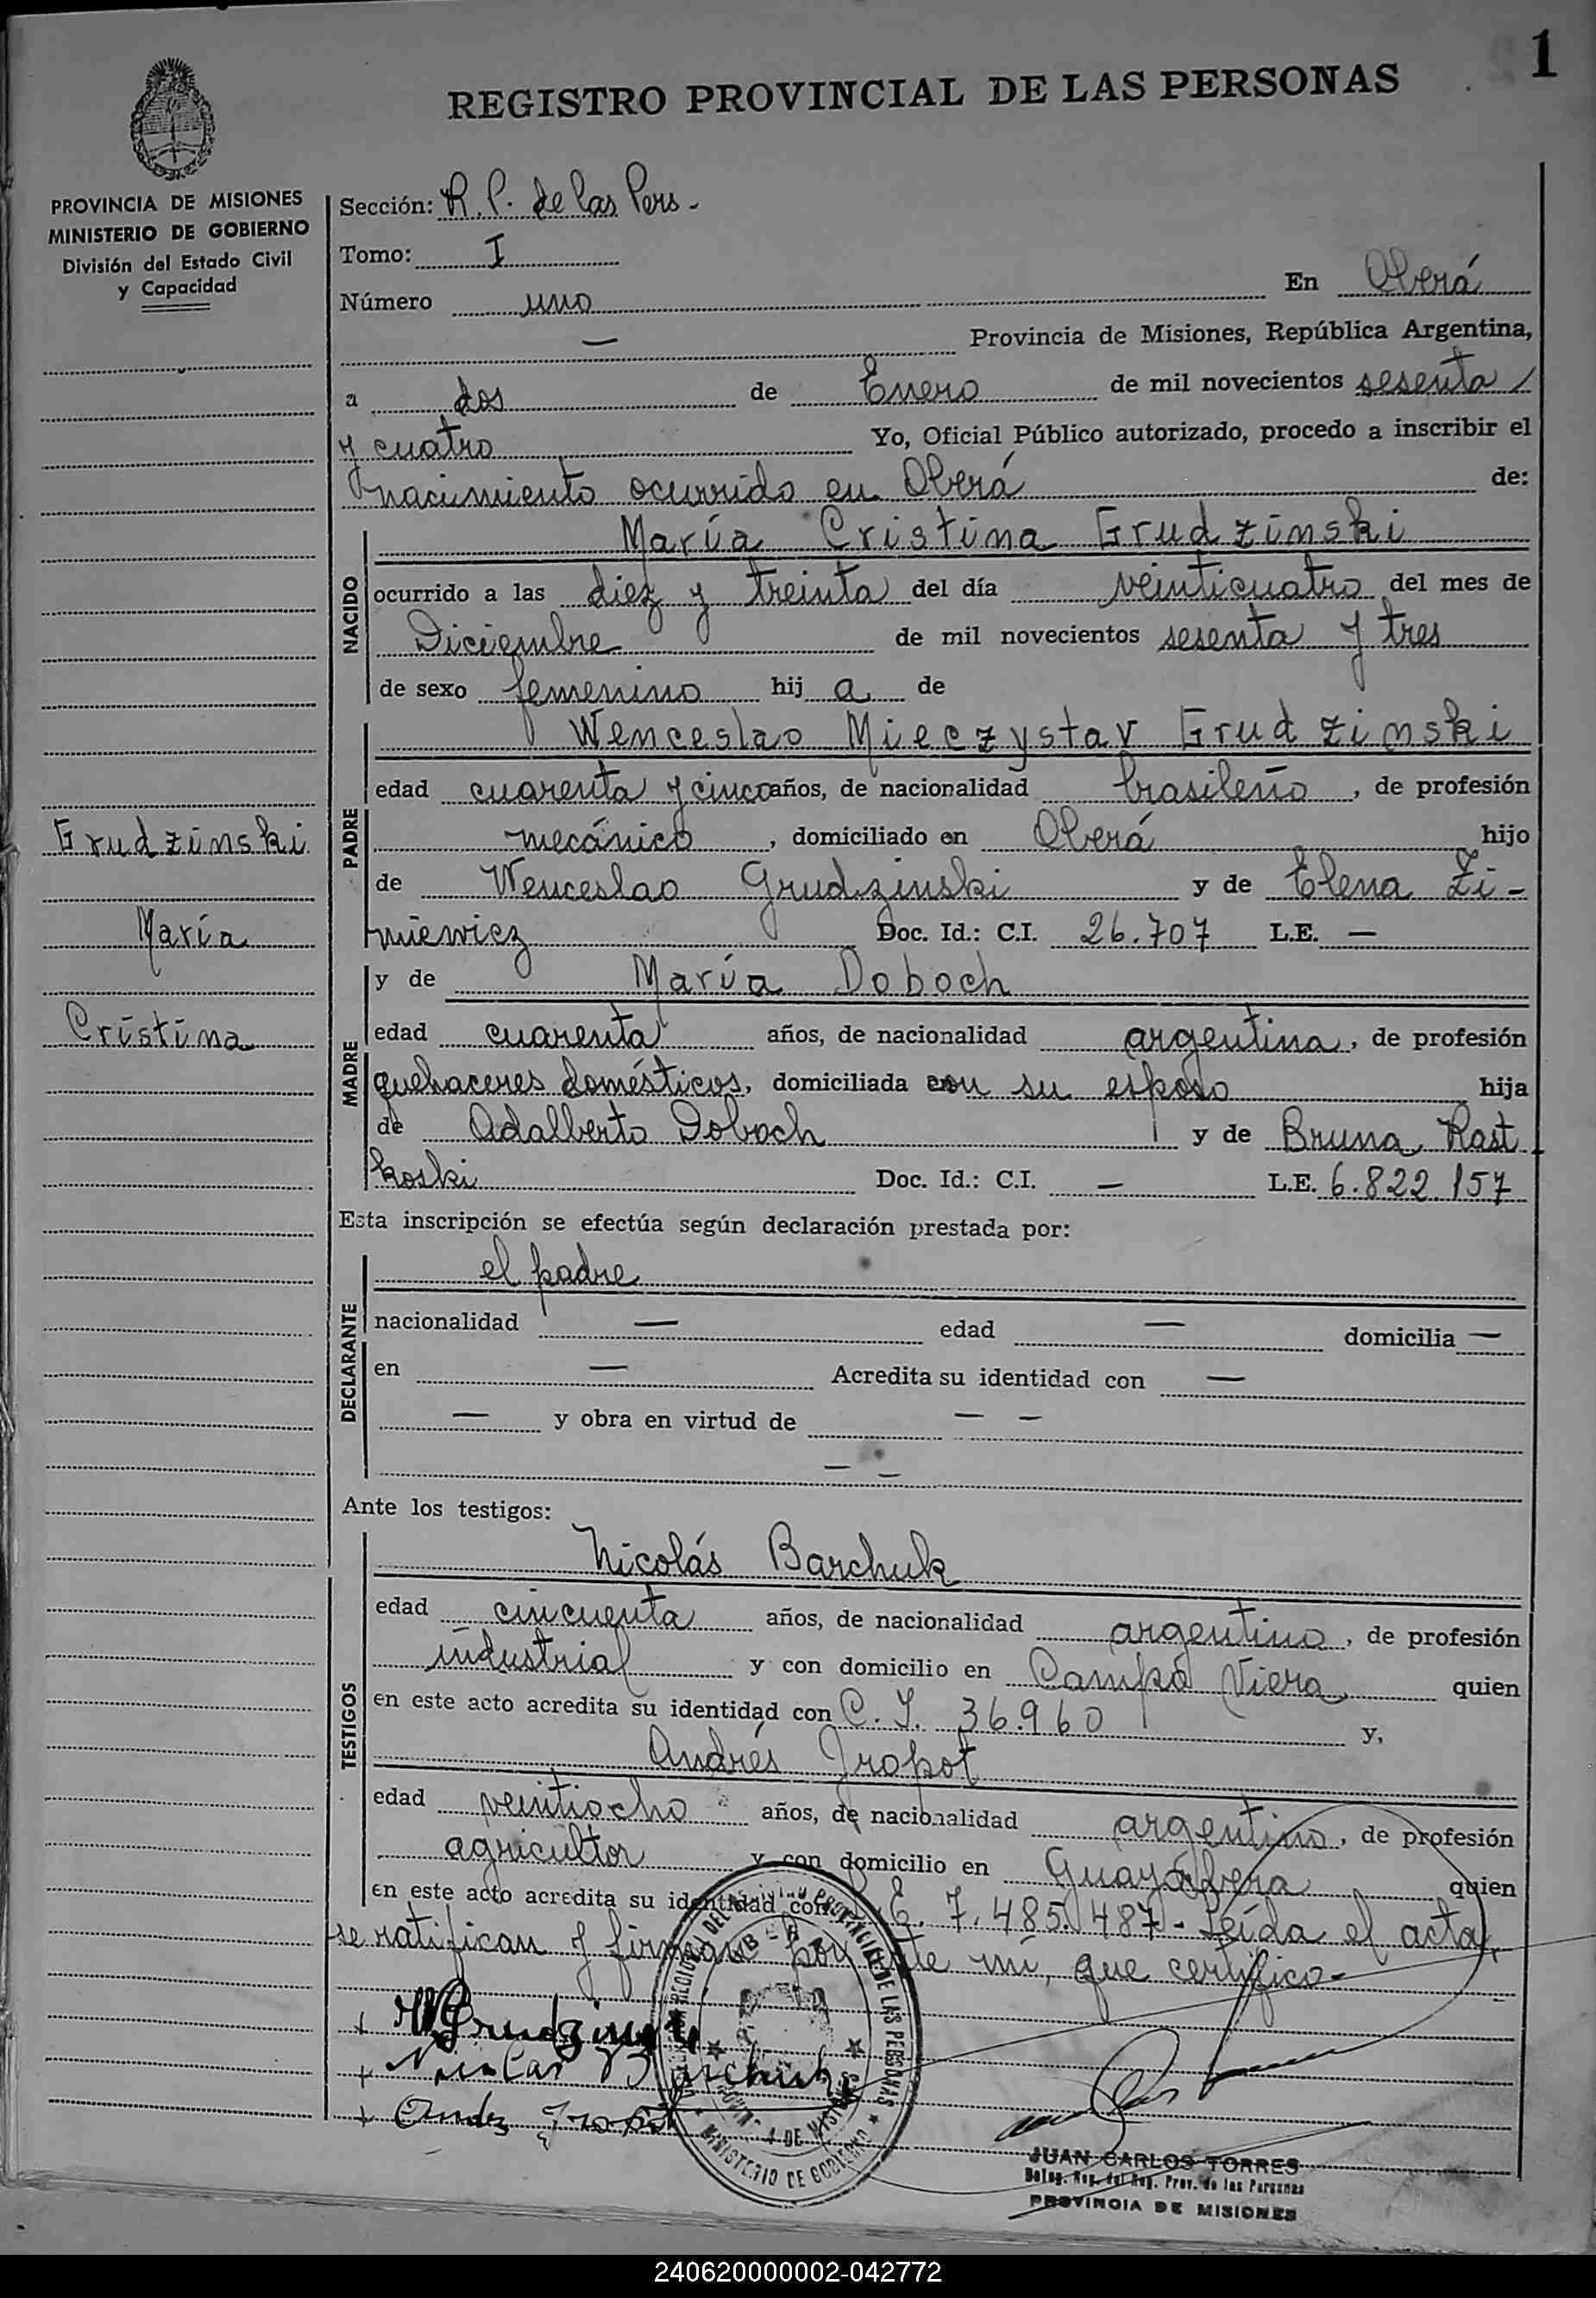 1
REGISTRO PROVINCIAL DE LAS PERSONAS
PROVINCIA DE MISIONES
MINISTERIO DE GOBIERNO
División del Estado Civil
y Capacidad
Grudzinski
María
Cristina
Sección: R. P. de las Pers.-
Tomo: I
Número uno En Oberá
— Provincia de Misiones, República Argentina,
a dos de Enero de mil novecientos sesenta
y cuatro Yo, Oficial Público autorizado, procedo a inscribir el
nacimiento ocurrido en Oberá de:
NACIDO
María Cristina Grudzinski
ocurrido a las diez y treinta del día veinticuatro del mes de
Diciembre de mil novecientos sesenta y tres
de sexo femenino hij a de
PADRE
Wenceslao Mieczystav Grudzinski
edad cuarenta y cinco años, de nacionalidad brasileño, de profesión
mecánico, domiciliado en Oberá hijo
de Wenceslao Grudzinski y de Elena Zi-
miewicz Doc. Id.: C.I. 26.707 L.E. —
MADRE
y de María Doboch
edad cuarenta años, de nacionalidad argentina, de profesión
quehaceres domésticos, domiciliada con su esposo hija
de Adalberto Doboch y de Bruna Rast
koski Doc. Id.: C.I. — L.E. 6.822.157
Esta inscripción se efectúa según declaración prestada por:
DECLARANTE
el padre
nacionalidad — edad — domicilia —
en — Acredita su identidad con —
— y obra en virtud de — —
— —
Ante los testigos:
TESTIGOS
Nicolás Barchuk
edad cincuenta años, de nacionalidad argentino, de profesión
industrial y con domicilio en Campo Viera quien
en este acto acredita su identidad con C. I. 36.960 y,
Andrés Jropot
edad veintiocho años, de nacionalidad argentino, de profesión
agricultor y con domicilio en Guayabera quien
en este acto acredita su identidad con E. 7.485.487- Leída el acta,
se ratifican y firman por ante mí, que certifico-
JUAN CARLOS TORRES
PROVINCIA DE MISIONES
MINISTERIO DE GOBIERNO
240620000002-042772